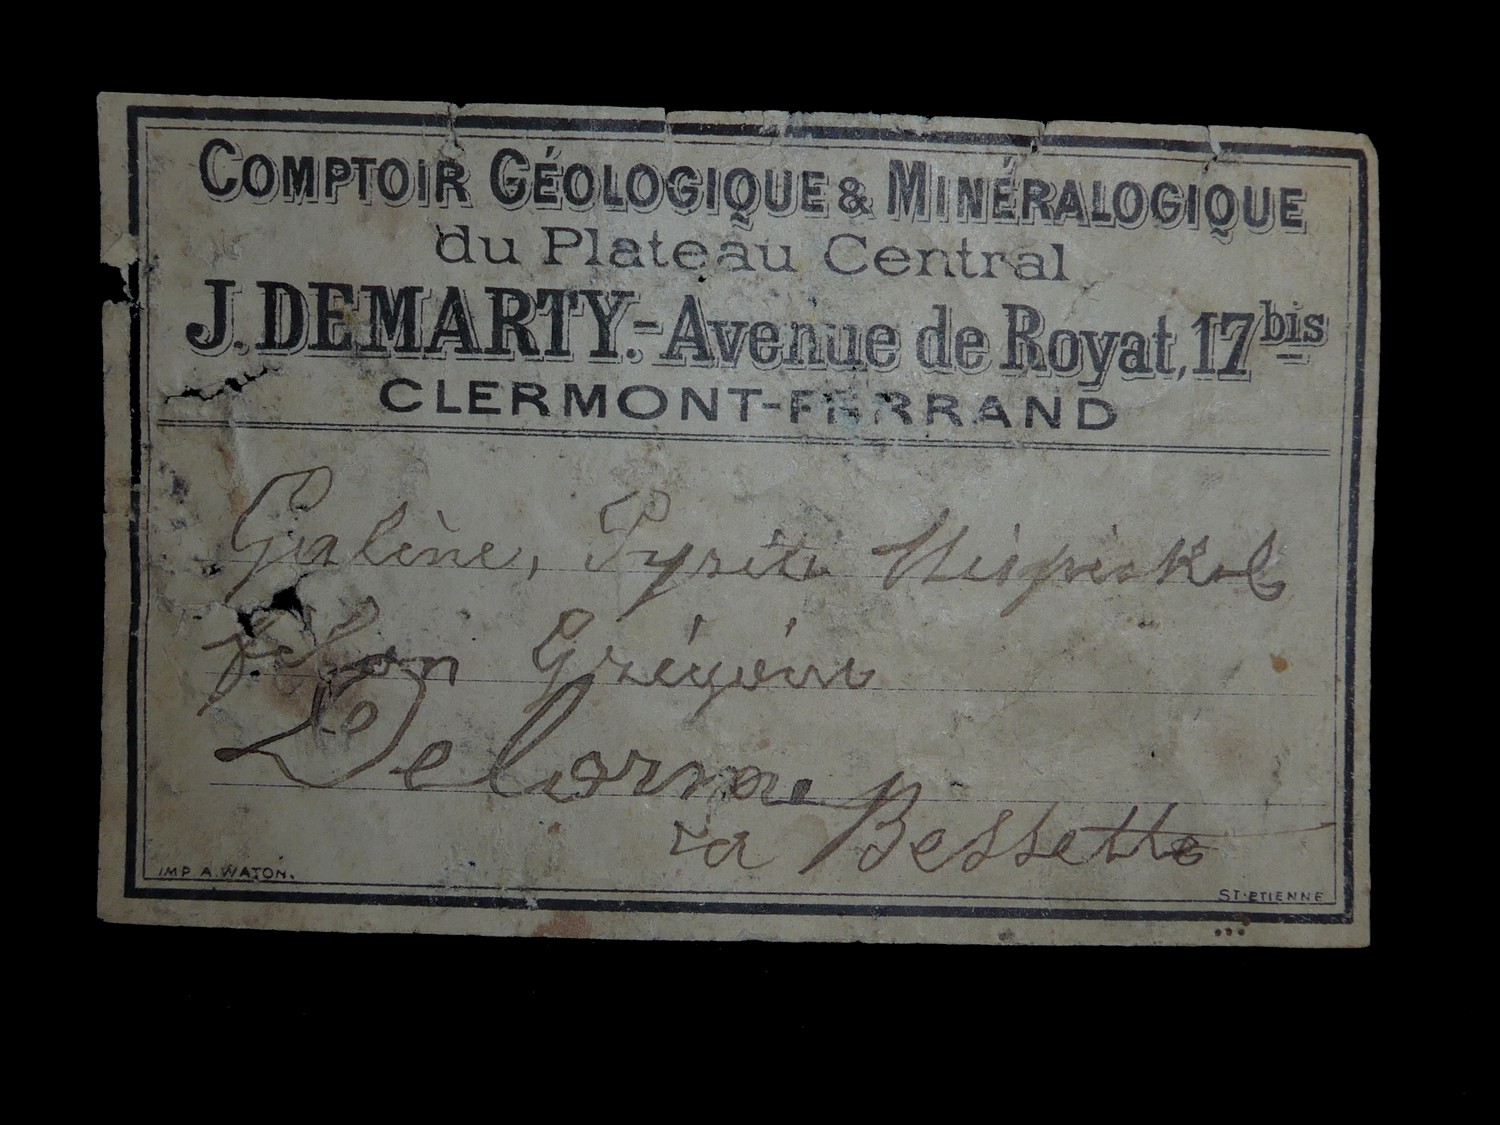 COMPTOIR GÉOLOGIQUE & MINÉRALOGIQUE
du Plateau Central
J. DEMARTY.-Avenue de Royat, 17 bis
CLERMONT-FERRAND
Galène, Pyrite Mispickel
filon Grégoire
Delorme
la Bessette
IMP A. WATON.
ST-ETIENNE